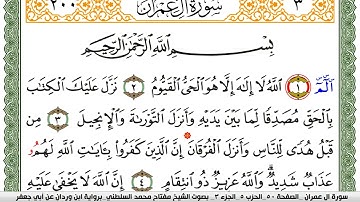 ٢٠٠ سُورَةُ آلِ عِمْرَان ٣
بِسْمِ اللَّهِ الرَّحْمَٰنِ الرَّحِيمِ
الٓمٓ ١ اللَّهُ لَا إِلَٰهَ إِلَّا هُوَ الْحَيُّ الْقَيُّومُ ٢ نَزَّلَ عَلَيْكَ الْكِتَابَ
بِالْحَقِّ مُصَدِّقًا لِمَا بَيْنَ يَدَيْهِ وَأَنْزَلَ التَّوْرَىٰةَ وَالْإِنْجِيلَ ٣ مِن
قَبْلُ هُدًى لِلنَّاسِ وَأَنْزَلَ الْفُرْقَانَ إِنَّ الَّذِينَ كَفَرُوا بِـَٔايَاتِ اللَّهِ لَهُمُۥ
عَذَابٌ شَدِيدٌ وَاللَّهُ عَزِيزٌ ذُو انْتِقَامٍ ٤ إِنَّ اللَّهَ لَا يَخْفَىٰ عَلَيْهِ
سورة آل عمران - الصفحة ٥٠ - الحزب ٥ - الجزء ٣ - بصوت الشيخ مفتاح محمد السلطني برواية ابن وردان عن أبي جعفر